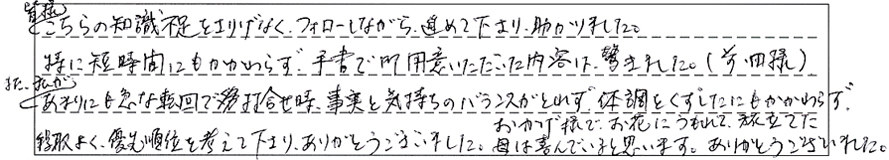 皆様
こちらの知識不足をさりげなく、フォローしながら、進めて下さり、助かりました。
特に短時間にもかかわらず、手書で御用意いただいた内容は、驚きました。(前田様)
また、私が
あまりにも急な転回で、打合せ時、事実と気持ちのバランスがとれず、体調をくずしたにもかかわらず、
段取よく、優先順位を考えて下さり、ありがとうございました。
おかげ様で、お花にうもれて、旅立てた
母は喜んでいると思います。ありがとうございました。